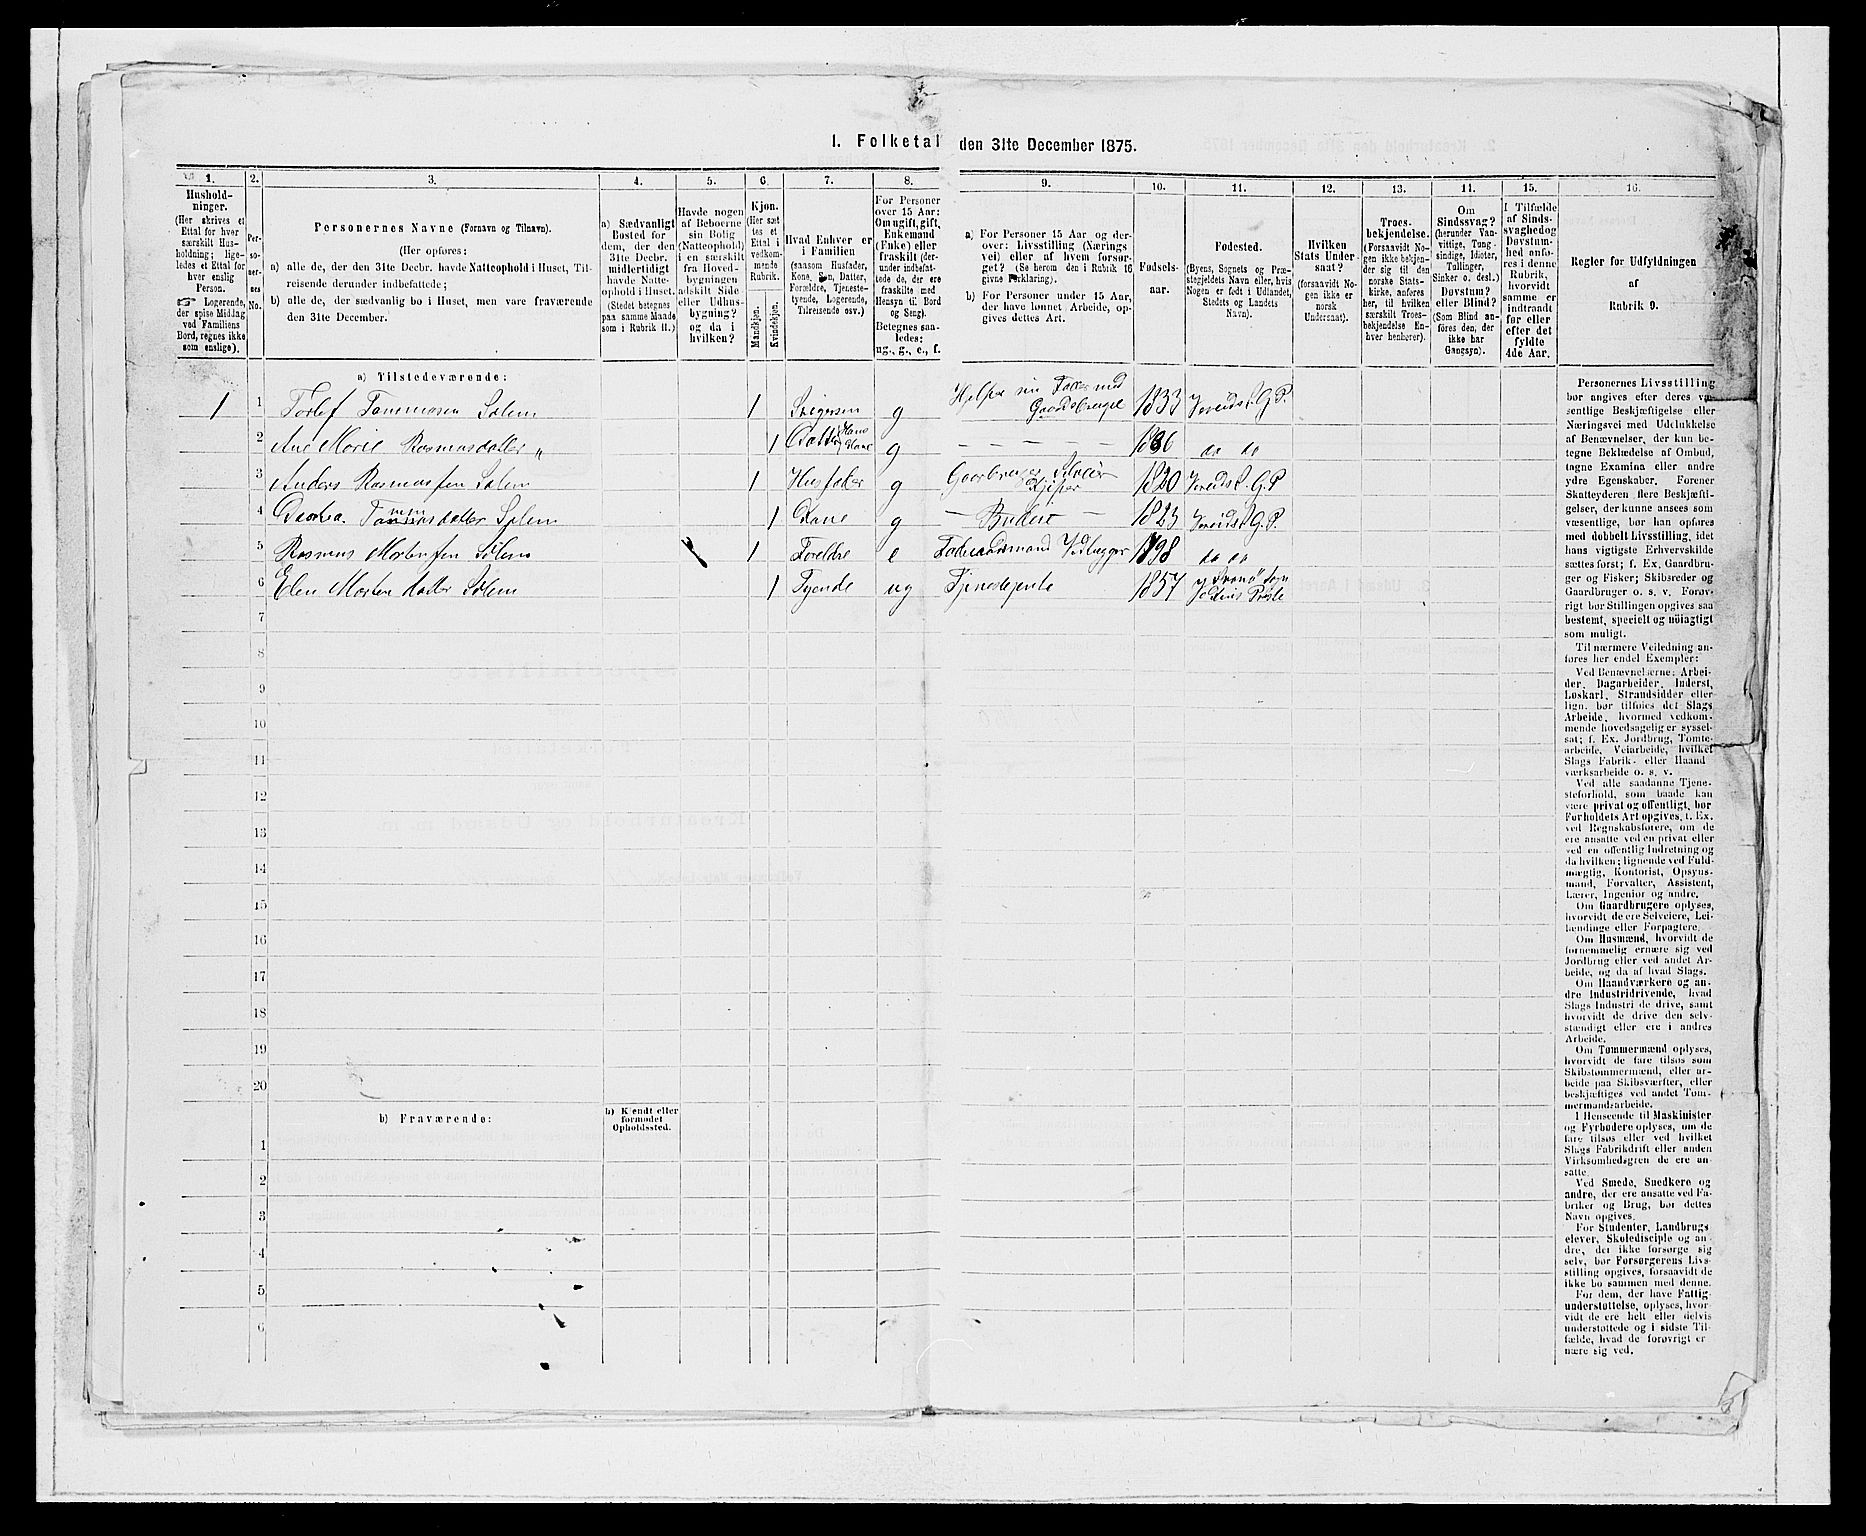 1. Folketal den 31te December 1875.
1.
Hushold-
ninger.
(Her skrives et
Ettal for hver
særskilt Hus-
holdning; lige-
ledes et Ettal for
hver enslig
Person.
☞ Logerende,
der spise Middag
ved Familiens
Bord, regnes ikke
som enslige).
2.
Per-
so-
ner-
nes
No.
3.
Personernes Navne (Fornavn og Tilnavn).
(Her opføres:
a) alle de, der den 31te Decbr. havde Natteophold i Huset, Til-
reisende derunder indbefattede;
b) alle de, der sædvanlig bo i Huset, men vare fraværende
den 31te December.
4.
a) Sædvanligt
Bosted for
dem, der den
31te Decbr.
midlertidigt
havde Natte-
ophold i Huset.
(Stedet betegnes
paa samme Maade
som i Rubrik 11.)
5.
Havde nogen
af Beboerne
sin Bolig
(Natteophold)
i en særskilt
fra Hoved-
bygningen
adskilt Side
eller Udhus-
bygning?
og da i
hvilken?
6.
Kjøn.
(Her sæt
tes et
Ettal i
vedkom-
mende
Rubrik.
Mandkjøn.
Kvindekjøn.
7.
Hvad Enhver er
i Familien
(saasom Husfader,
Kone, Søn, Datter,
Forældre, Tjeneste-
tyende, Logerende,
Tilreisende osv.)
8.
For Personer
over 15 Aar:
Om ugift, gift,
Enkemand
(Enke) eller
fraskilt (der-
under indbefat-
tede de, der ere
fraskilte med
Hensyn til Bord
og Seng).
Betegnes saa-
ledes:
ug., g., e., f.
9.
a) For Personer 15 Aar og der-
over: Livsstilling (Nærings
vei) eller af hvem forsør-
get? (Se herom den i Rubrik 16
givne Forklaring).
b) For Personer under 15 Aar,
der have lønnet Arbeide, op-
gives dettes Art.
10.
Fødsels-
aar.
11.
Fødested.
(Byens, Sognets og Præ-
stegjeldets Navn eller, hvis
Nogen er født i Udlandet,
Stedets og Landets
Navn).
12.
Hvilken
Stats Under-
saat?
(forsaavidt No-
gen ikke er
norsk
Undersaat).
13.
Troes-
bekjendelse.
(Forsaavidt No-
gen ikke bekjen-
der sig til den
norske Stats-
kirke, anføres
her, til hvilken
særskilt Troes-
bekjendelse En-
hver henhører).
Om
Sindssvag?
(herunder Van-
vittige, Tung-
sindige, Idioter,
Tullinger,
Sinker o. desl.)
Døvstum?
eller Blind?
(Som Blind an-
føres den, der
ikke har
Gangsyn).
15.
I Tilfælde
af Sinds-
svaghed og
Døvstum-
hed anfø-
res i denne
Rubrik,
hvorvidt
samme er
indtraadt
før eller
efter det
fyldte
4de Aar.
16.
Regler for Udfyldningen
af
Rubrik 9.
a) Tilstedeværende:
1 1 Tommesen Solem 1 g Hjelper sin Fader med Gaardsbruget 1833
2 Ane Marie Rasmusdatter „ 1 Kone g 1836 do do
3 Anders Rasmussen Solem 1 Husfader g Gaardbruger Selveier 1820
4 Tommasdatter Solem 1 Kone g — Budeie — 1823
5 Rasmus Mortensen Solem 1 Foreldre e 1798 do do
6 Elen Mortensdatter Solem 1 Tyende ug Tjenestejente 1857
7
8
9
10
11
12
13
14
15
16
17
18
19
20
b) Fraværende:
b) Kjendt eller
formodet
Opholdssted.
1
2
3
4
5
6
Personernes Livsstilling
bør angives efter deres væ-
sentlige Beskjæftigelse eller
Næringsvei med Udelukkelse
af Benævnelser, der kun be-
tegne Beklædelse af Ombud,
tagne Examina eller andre
ydre Egenskaber. Forener
Skatteyderen flere Beskjæfti-
gelser, der kunne ansees som
væsentlige, bør han opføres
med dobbelt Livsstilling, idet
hans vigtigste Erhvervskilde
sættes først; f. Ex. Gaardbru-
ger og Fisker; Skibsreder og
Gaardbruger o. s. v. Forøv-
rigt bør Stillingen opgives saa
bestemt, specielt og nøiagtigt
som muligt.
Til nærmere Veiledning an-
føres her endel Exempler:
Ved Benævnelserne: Arbei-
der, Dagarbeider, Inderst,
Løskarl, Strandsidder eller
lign. bør tilføies det Slags
Arbeide, hvormed vedkom-
mende hovedsagelig er syssel-
sat; f. Ex. Jordbrug, Tømte-
arbeide, Veiarbeide, hvilket
Slags Fabrik- eller Haand
værksarbeide o. s. v.
Ved alle saadanne Tjene-
steforhold, som baade kan
være privat og offentligt, bør
Forholdets Art opgives, f. Ex.
ved Regnskabsførere, om de
ere ansatte ved en privat eller
ved en offentlig Indretning og
da hvilken; lignende ved Fuld-
mægtig, Kontorist, Opsyns-
mand, Forvalter, Assistent,
Lærer, Ingeniør og andre.
Om Gaardbrugere oplyses,
hvorvidt de ere Selveiere, Lei-
lændinge eller Forpagtere.
Om Husmænd, hvorvidt de
fornemmelig ernære sig ved
Jordbrug eller ved andet Ar-
beide, og da af hvad Slags.
Om Haandværkere og an-
dre Industridrivende, hvad
Slags Industri de drive, samt
hvorvidt de drive den selv-
stændigt eller ere i andres
Arbeide.
Om Tømmermænd oplyses,
hvorvidt de fare tilsøs som
Skibstømmermænd, eller ar-
beide paa Skibsværfter, eller
beskjæftiges ved andet Tøm-
mermandsarbeide.
I Henseende til Maskinister
og Fyrbødere oplyses, om de
fare tilsøs eller ved hvilket
Slags Fabrikdrift eller anden
Virksomhedsgren de ere an-
satte.
Ved Smede, Snedkere og
andre, der ere ansatte ved Fa-
briker og Brug, bør dettes
Navn opgives.
For Studenter, Landbrugs
elever, Skoledisciple og an-
dre, der ikke forsørge sig
selv, bør Forsørgerens Livs-
stilling opgives, forsaavidt de
ikke bo sammen med denne.
For dem, der have Fattig-
understøttelse, oplyses, hvor-
vidt de ere helt eller delvis
understøttede og i sidste Til-
fælde, hvad de forøvrigt er
nære sig ved.